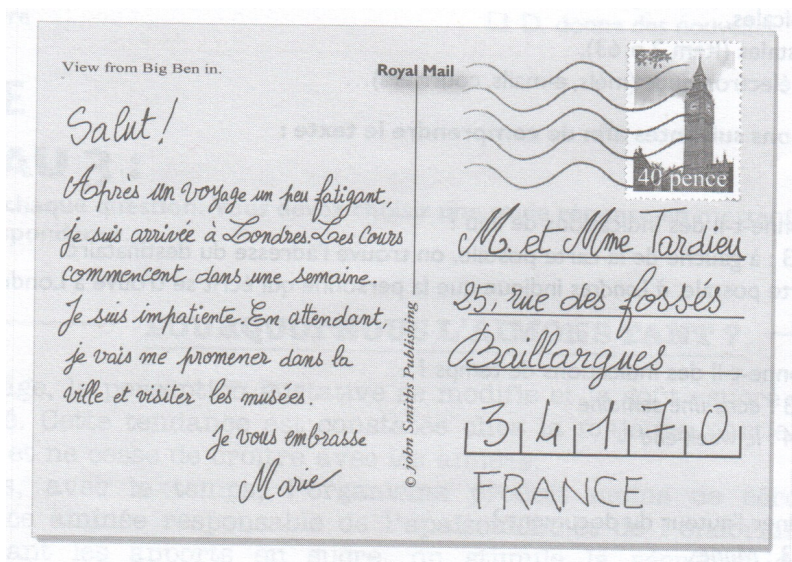 View from Big Ben in.
Royal Mail
40 pence
Salut!
Apres un voyage un peu fatigant,
je suis arrivée à Londres. Les cours
commencent dans une semaine.
Je suis impatiente. En attendant,
je vais me promener dans la
ville et visiter les musées.
Je vous embrasse
Marie
© John Smiths Publishing
M. et Mme Tardieu
25, rue des fossés
Baillargues
3 4 4 7 0
FRANCE